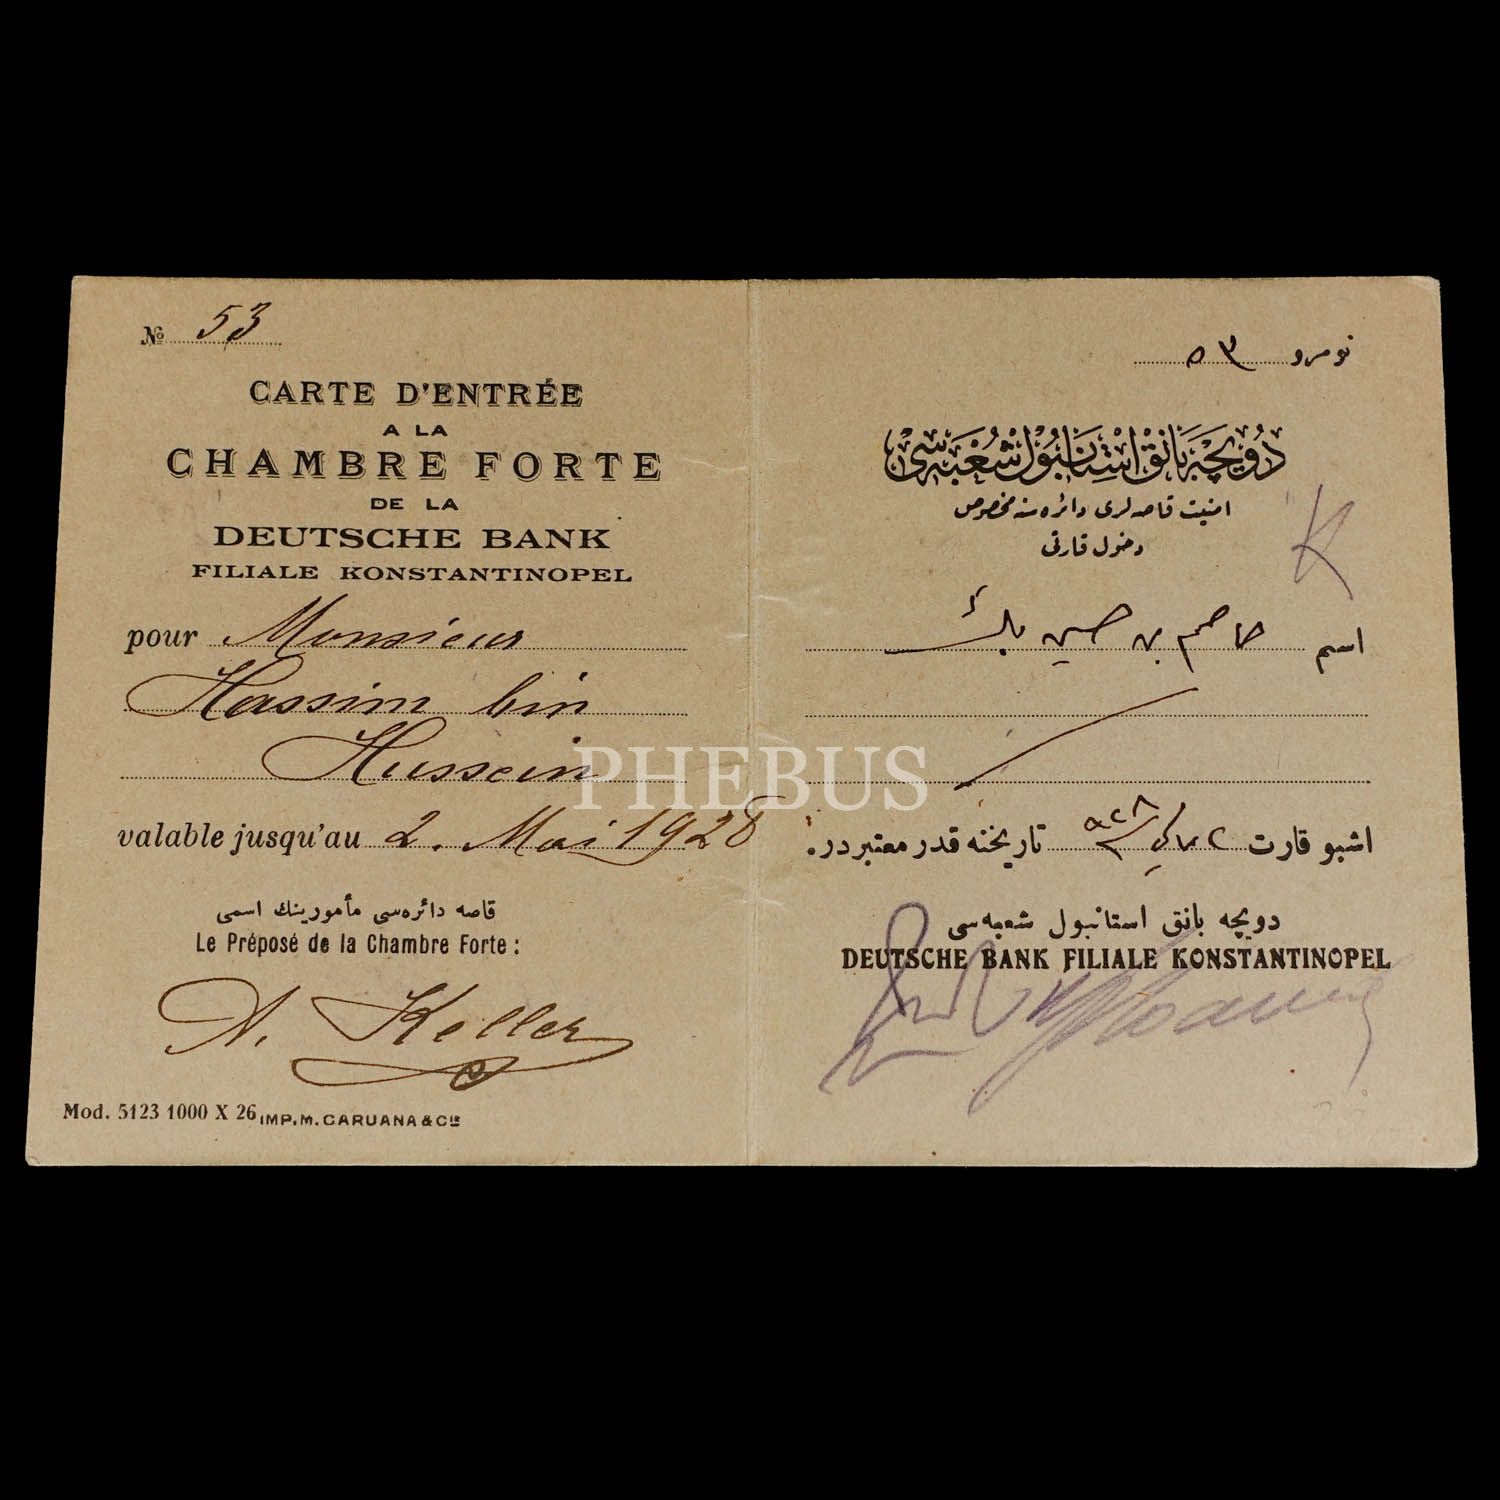 № 53
CARTE D'ENTRÉE
A LA
CHAMBRE FORTE
DE LA
DEUTSCHE BANK
FILIALE KONSTANTINOPEL
pour Monsieur
Hassim bin
Hussein
valable jusqu'au 2. Mai 1928
قاصه دائره‌سی مأمورینك اسمی
Le Préposé de la Chambre Forte :
A. Keller
Mod. 5123 1000 X 26 IMP. M. CARUANA & Cie
نومرو ٥٣
دویچه بانق استانبول شعبه‌سی
امنیت قاصه‌لری دائره‌سنه مخصوص
دخول قارتی
K
اسم عاصم بن حسین بك
اشبو قارت ٢ مایس ٩٢٨ تاریخنه قدر معتبردر.
دویچه بانق استانبول شعبه‌سی
DEUTSCHE BANK FILIALE KONSTANTINOPEL
PHEBUS